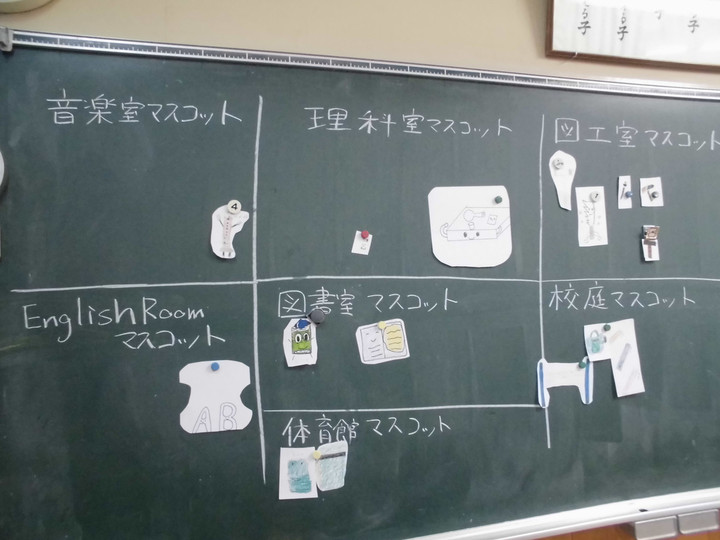 音楽室マスコット
理科室マスコット
図工室マスコット
4
English Room
マスコット
図書室 マスコット
校庭マスコット
AB
体育館 マスコット